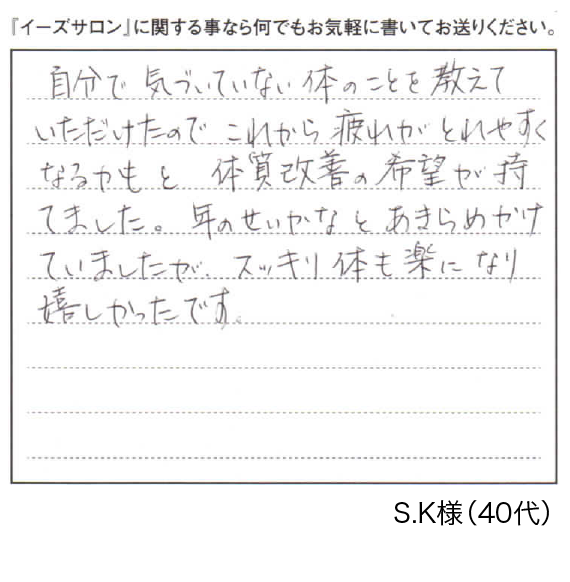 『イーズサロン』に関する事なら何でもお気軽に書いてお送りください。
自分で気づいていない体のことを教えて
いただけたのでこれから疲れがとれやすく
なるかもと 体質改善の希望が持
てました。年のせいかなとあきらめかけ
ていましたが、スッキリ体も楽になり
嬉しかったです。
S.K様（40代）